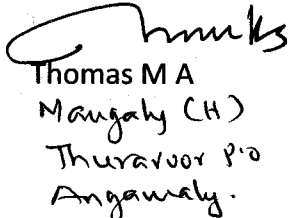 Thomas M A
Mangaly (H)
Thuravoor P.O
Angamaly.